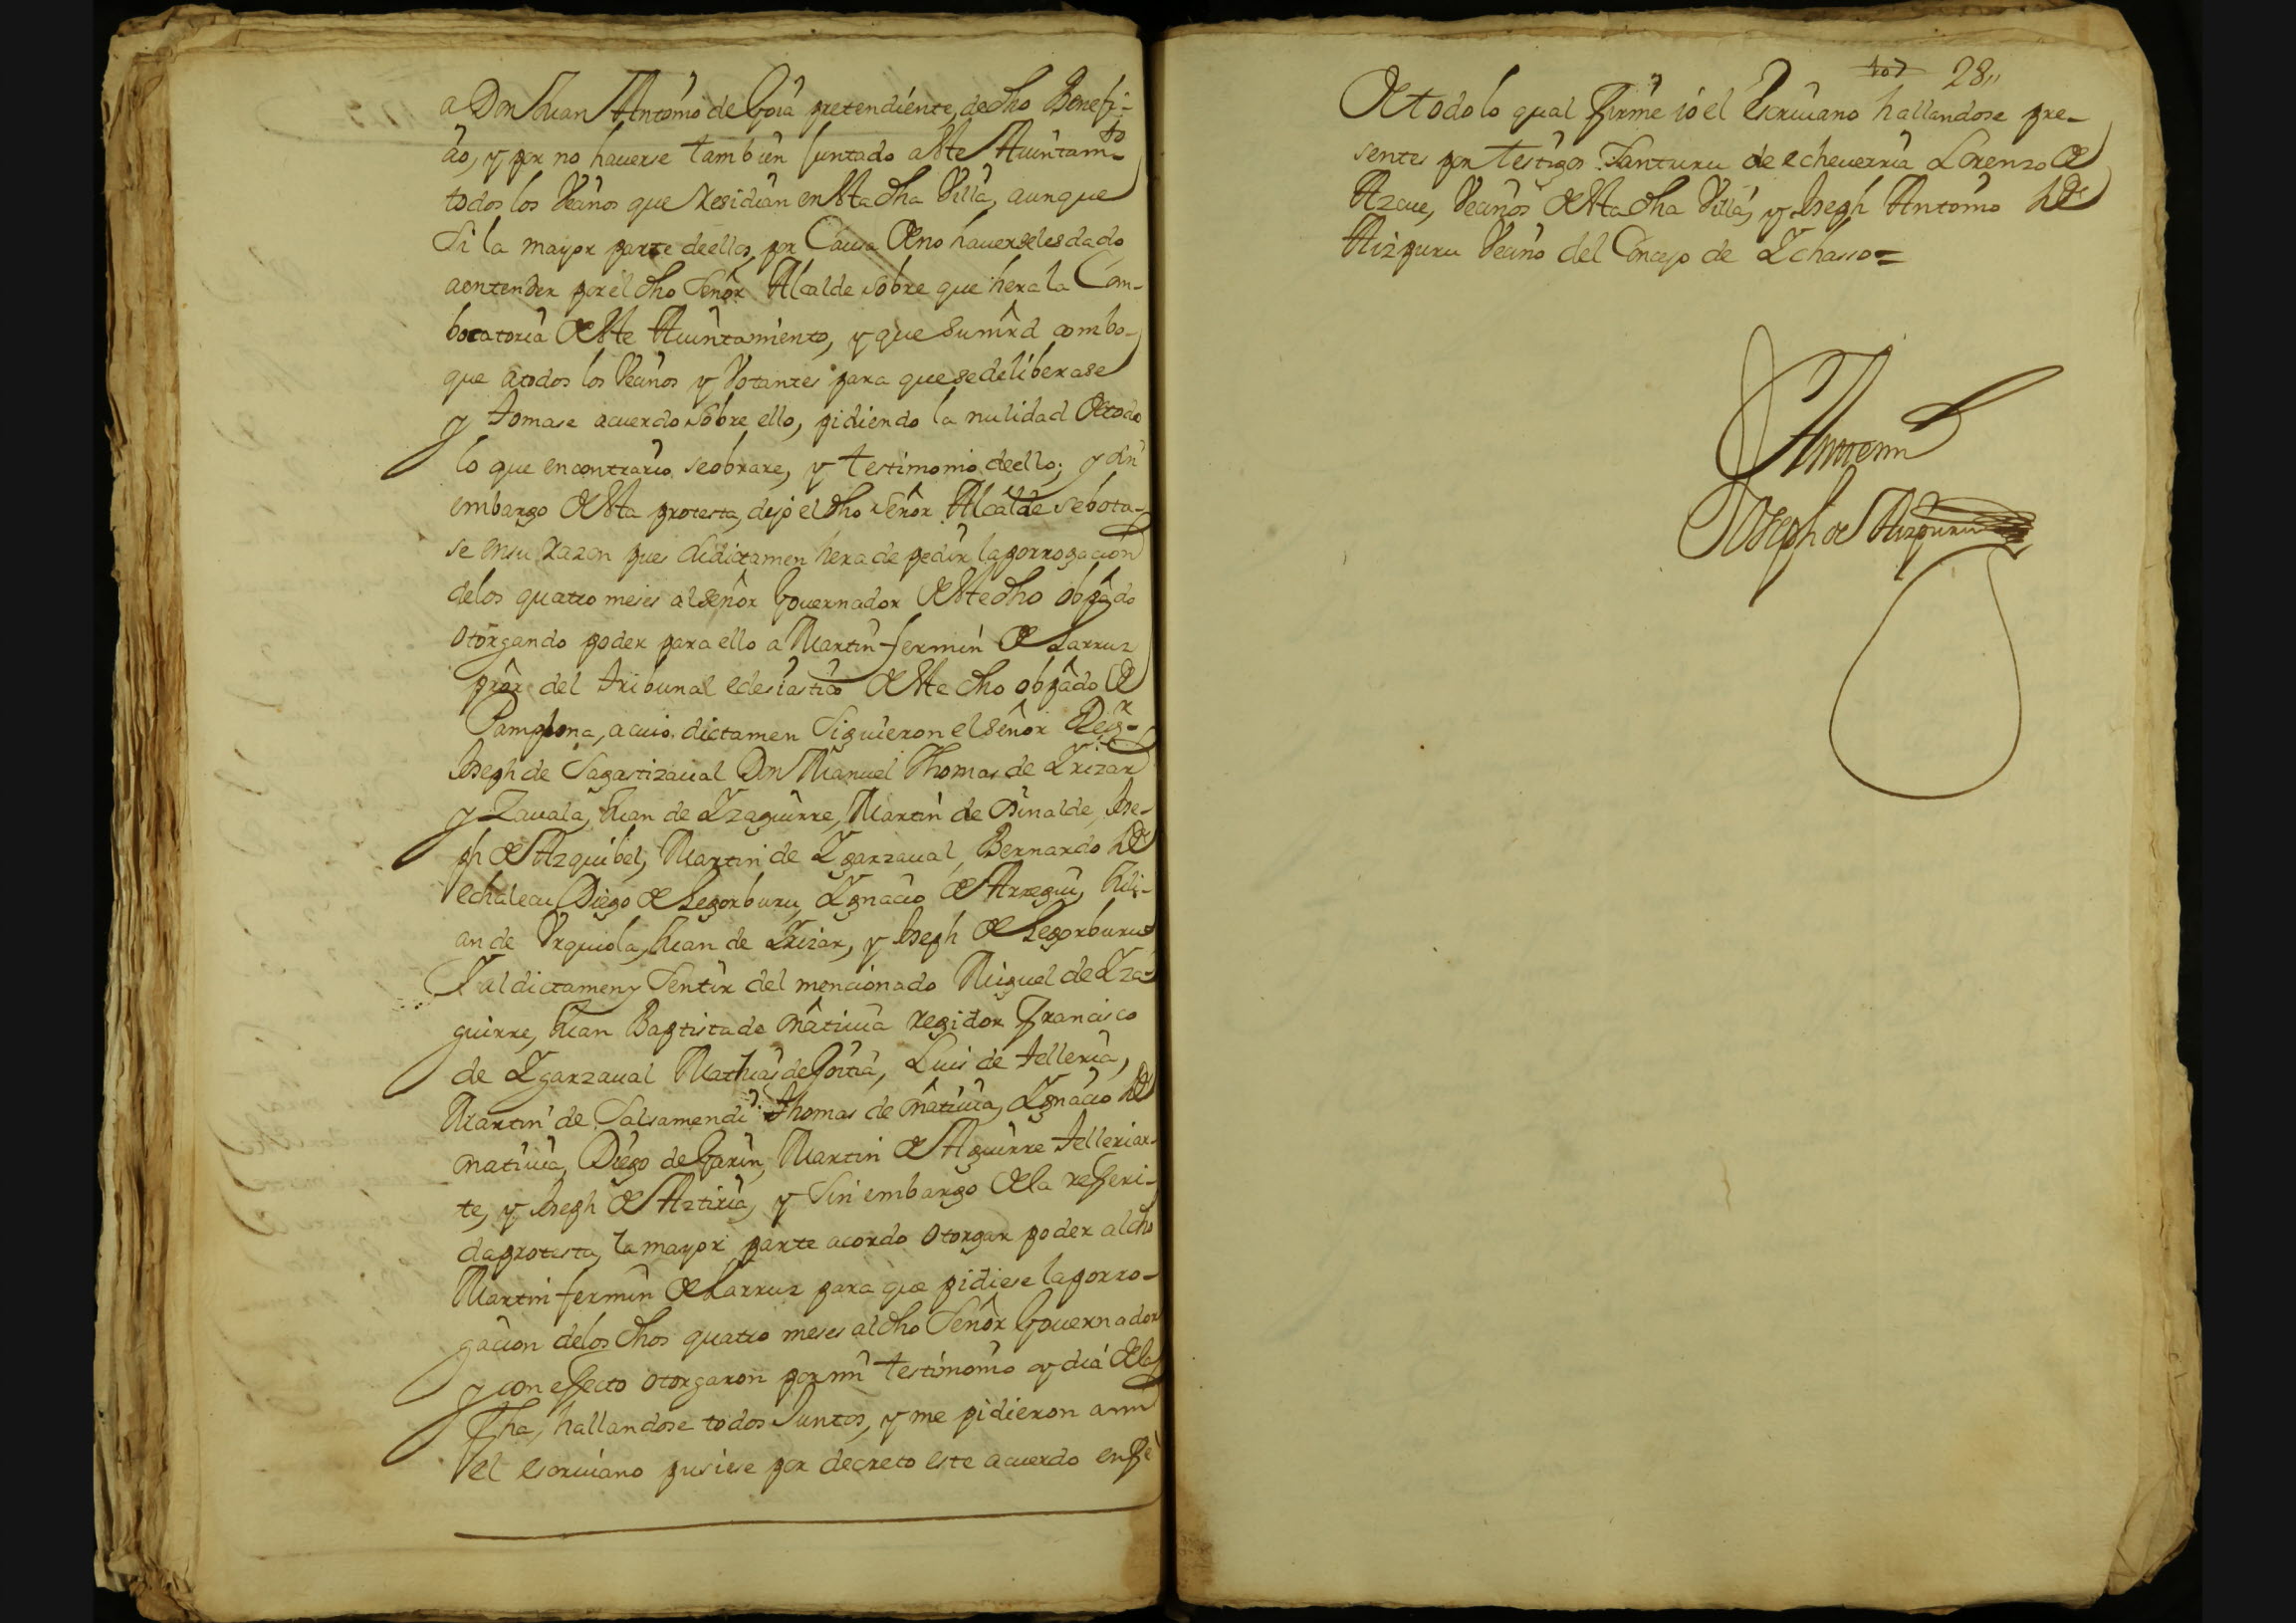 a Don Juan Antonio de Goia pretendiente, de dho Benefi-
çio, y por no hauerse tambien Juntado a este Aiuntam.to
todos los Vecinos que residian en esta dha Villa, aunque
Si la mayor parte de ellos, por Causa de no hauerseles dado
a entender por el dho Señor Alcalde sobre que hera la Com-
bocatoria de este Aiuntamiento, y que Su mrd combo-
que a todos los Vecinos y Votantes para que se deliberase
y tomase acuerdo sobre ello, pidiendo la nulidad de todo
lo que en contrario se obrare, y testimonio de ello; y sin
embargo de esta protesta, dijo el dho Señor Alcalde se bota-
se en su razon pues su dictamen hera de pedir la porrogacion
de los quatro meses al Señor Gouernador de este dho obpado
otorgando poder para ello a Martin fermin de Larruz
pror del tribunal eclesiastico de este dho obpado de
Pamplona, a cuio dictamen Siguieron el Señor Regr
Joseph de Sagastizaual Don Manuel Thomas de Yrizar
y Zauala, Juan de Yzaguirre, Martin de Osinalde, Jose-
ph de Azquibel, Martin de Ygarzaual, Bernardo de
echaleau Diego de Legorburu, Ygnacio de Arregui, Juli-
an de Vrquiola, Juan de Yrizar, y Joseph de Legorburu
Y al dictamen y Sentir del mencionado Miguel de Yza-
guirre, Juan Baptista de onativia regidor Francisco
de Ygarzaual Mathias de Goitia, Luis de telleria,
Martin de Salsamendi Thomas de onativia, Ygnacio de
onativia, Diego de Garin, Martin de Aguirre telleriar-
te, y Joseph de Aztiria, y Sin embargo de la refferi-
da protesta, la mayor parte acordo otorgar poder al dho
Martin fermin de Larruz para que pidiese la porro-
gacion de los dhos quatro meses al dho Señor Gouernador
y con effecto otorgaron por mi testimonio oy dia de la
fha, hallandose todos Juntos, y me pidieron a mi
el escriuano pusiese por decreto este acuerdo en fe
28
De todo lo qual firme io el Escriuano hallandose pre-
sentes por testigos Santuru de echeuerria Lorenzo de
Azcue, Vecinos de esta dha Villa, y Joseph Antonio de
Aizpuru Vecino del Concejo de Ychasso=
Ante mi
Joseph de Aizpuru